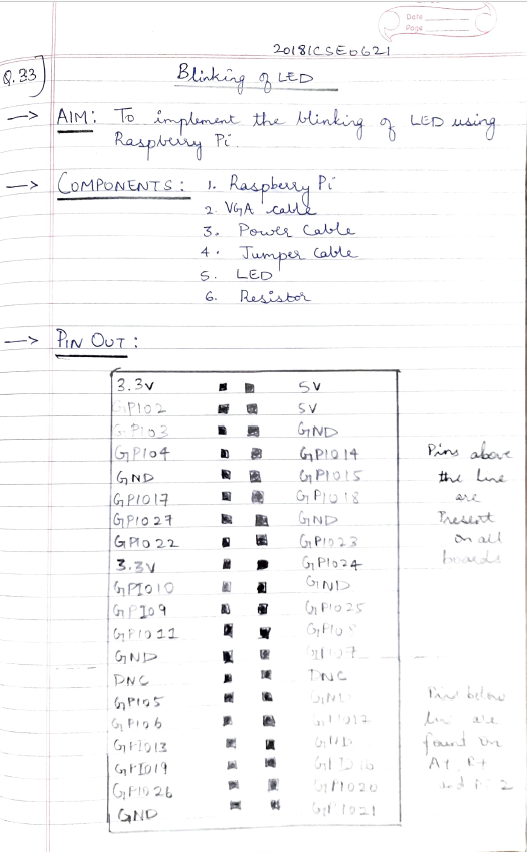 Date
Page
20181CSE0621
Q.33
Blinking of LED
→ AIM: To implement the blinking of LED using
Raspberry Pi.
→ COMPONENTS: 1. Raspberry Pi
2. VGA cable
3. Power Cable
4. Jumper Cable
5. LED
6. Resistor
→ PIN OUT:
3.3V 5V
GPIO2 5V
GPIO3 GND
GPIO4 GPIO14
GND GPIO15
GPIO17 GPIO18
GPIO27 GND
GPIO22 GPIO23
3.3V GPIO24
GPIO10 GND
GPIO9 GPIO25
GPIO11 GPIO8
GND GPIO7
DNC DNC
GPIO5 GND
GPIO6 GPIO12
GPIO13 GND
GPIO19 GPIO16
GPIO26 GPIO20
GND GPIO21
Pins above
the line
are
Present
on all
boards
Pins below
line are
found on
A+, B+
and 2